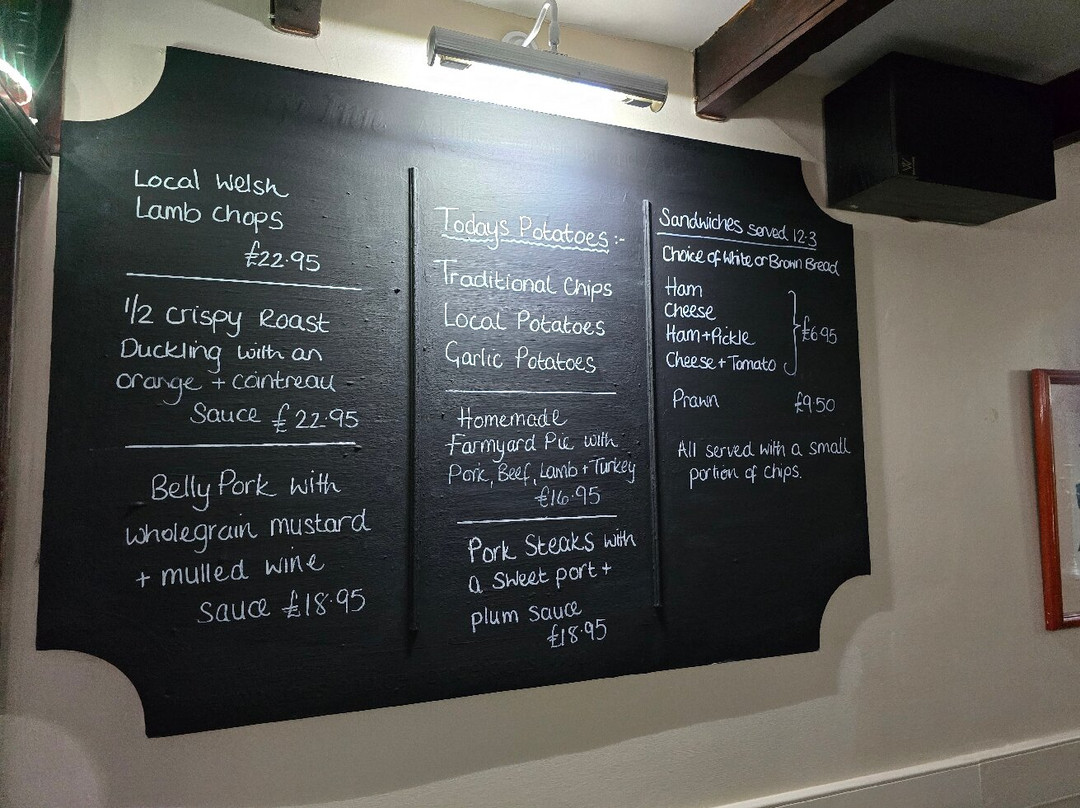 Local Welsh
Lamb chops
£22.95
1/2 crispy Roast
Duckling with an
orange + cointreau
Sauce £22.95
Belly Pork with
wholegrain mustard
+ mulled wine
sauce £18.95
Todays Potatoes :-
Traditional Chips
Local Potatoes
Garlic Potatoes
Homemade
Farmyard Pie with
Pork, Beef, Lamb + Turkey
£16.95
Pork Steaks with
a sweet port +
plum sauce
£18.95
Sandwiches served 12-3
Choice of White or Brown Bread
Ham
Cheese
Ham + Pickle } £6.95
Cheese + Tomato
Prawn £9.50
All served with a small
portion of chips.